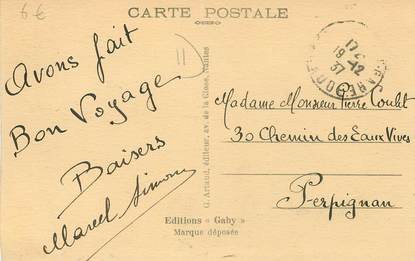 6€
CARTE POSTALE
Avons fait
Bon Voyage
Baisers
Marcel Simon
G. Artaud, éditeur, av. de la Close, Nantes
17
19-12
37
Madame Monsieur Pierre Coulet
30 Chemin des Eaux Vives
Perpignan
Editions " Gaby "
Marque déposée